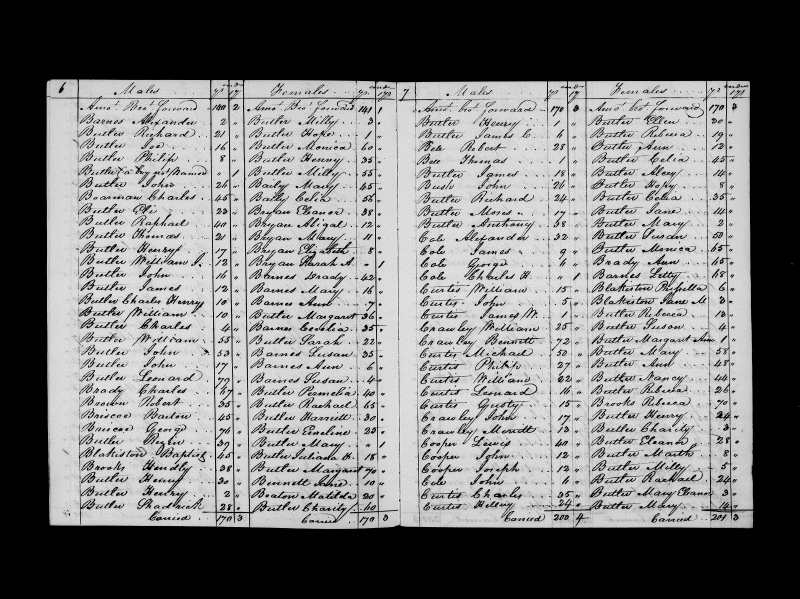 6 Males yrs Females yrs
Amot. Brot. forward 140 2 Amot. Brot. forward 141 1
Barnes Alexander 2 " Butler Milly 3 "
Butler Richard 21 " Butler Hope 1 "
Butler Joe 16 " Butler Monica 60 "
Butler Philip 8 " Butler Henny 35 "
Butler (a boy not named " 1 Butler Milly 55 "
Butler John 26 " Baily Mary 45 "
Boarman Charles 45 " Bailey Celia 56 "
Butler 23 " Bryan Eleanor 38 "
Butler Raphael 40 " Bryan Abigal 12 "
Butler Thomas 21 " Bryan Mary 11 "
Butler Henry 17 " Bryan Elizabeth 8 "
Butler William J. 12 " Bryan Sarah A. " 1
Butler John 16 " Barnes Grady 42 "
Butler James 12 " Barnes Mary 16 "
Butler Charles Henry 10 " Barnes Ann 7 "
Butler William 10 " Butler Margaret 36 "
Butler Charles 4 " Barnes Cecelia 35 "
Butler William 55 " Butler Sarah 22 "
Butler John 53 " Barnes Susan 35 "
Butler John 17 " Barnes Ann 6 "
Butler Leonard 77 " Barnes Susan 4 "
Brady Charles 67 " Butler Permelia 40 "
Brown Robert 35 " Butler Rachael 65 "
Briscoe Barton 45 " Butler Harriett 30 "
Briscoe George 76 " Butler Emeline 25 "
Butler 39 " Butler Mary " 1
Blakiston Baptist 45 " Butler Juliana 18 "
Brooks Hendly 38 " Butler Margaret 70 "
Butler Henry 30 " Bennett Jane 10 "
Butler Henry 2 " Beaton Matilda 20 "
Butler Shadrack 28 " Butler Charity 60 "
Carried 170 3 Carried 170 3
7 Males yrs Females yrs
Amot. brot. forward 170 3 Amot. brot. forward 170 3
Butler Henry 1 " Butler Ellen 20 "
Butler James C. 6 " Butler Rebecca 19 "
Bell Robert 28 " Butler Ann 12 "
Bell Thomas 1 " Butler Celia 45 "
Butler James 18 " Butler Alecy 14 "
Bush John 26 " Butler Hopy 8 "
Butler Richard 24 " Butler Celia 35 "
Butler Moses 17 " Butler Jane 14 "
Butler Anthony 38 " Butler Mary 2 "
Cole Alexander 32 " Butler Susan 50 "
Cole James 9 " Butler Monica 65 "
Cole George 6 " Brady Ann 45 "
Cole Charles H. " 1 Barnes Letty 68 "
Curtis William 15 " Blakiston Prisilla 6 "
Curtis John 5 " Blakiston Jane M 3 "
Curtis James W. 1 " Butler Rebecca 13 "
Crawley William 25 " Butler Susan 4 "
Crawley Bennett 72 " Butler Margaret Ann 1 "
Curtis Michael 50 " Butler Mary 58 "
Curtis Philip 27 " Butler Ann 48 "
Curtis William 22 " Butler Nancy 44 "
Curtis Leonard 16 " Butler Rebecca 26 "
Curtis Gusty 15 " Brooks Rebecca 70 "
Crawley John 17 " Butler Henny 24 "
Crawley Meredt 13 " Butler Charity 3 "
Cooper Lewis 40 " Butler Eleanor 28 "
Cooper John 12 " Butler Marth 8 "
Cooper Joseph 12 " Butler Milly 5 "
Cole John 6 " Butler Rachael 24 "
Curtis Charles 35 " Butler Mary Eleanor 3 "
Curtis 24 " Butler Mary 14 "
Carried 200 4 Carried 201 3